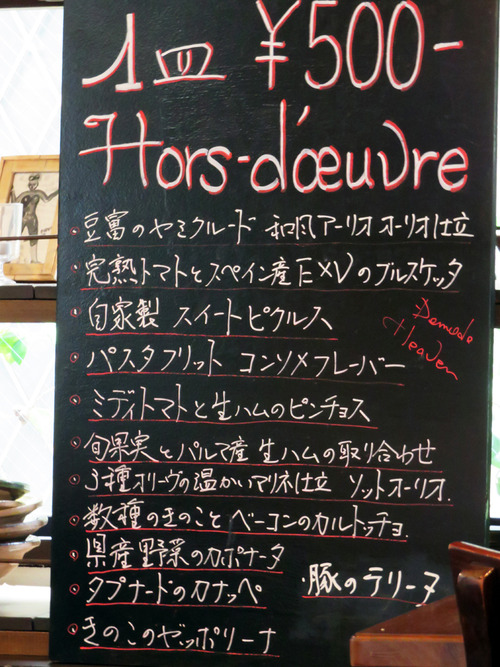 1皿 ¥500-
Hors-d'œuvre
豆富のヤミクルード 和風アーリオオーリオ仕立
完熟トマトとスペイン産EXVのブルスケッタ
自家製 スイートピクルス
パスタフリット コンソメフレーバー
ミディトマトと生ハムのピンチョス
旬果実とパルマ産 生ハムの取り合わせ
3種オリーヴの温かいマリネ仕立 ソットオーリオ.
数種のきのことベーコンのカルトッチョ.
県産野菜のカポナータ
タプナードのカナッペ
・豚のテリーヌ
きのこのゼッポリーナ
Heaven